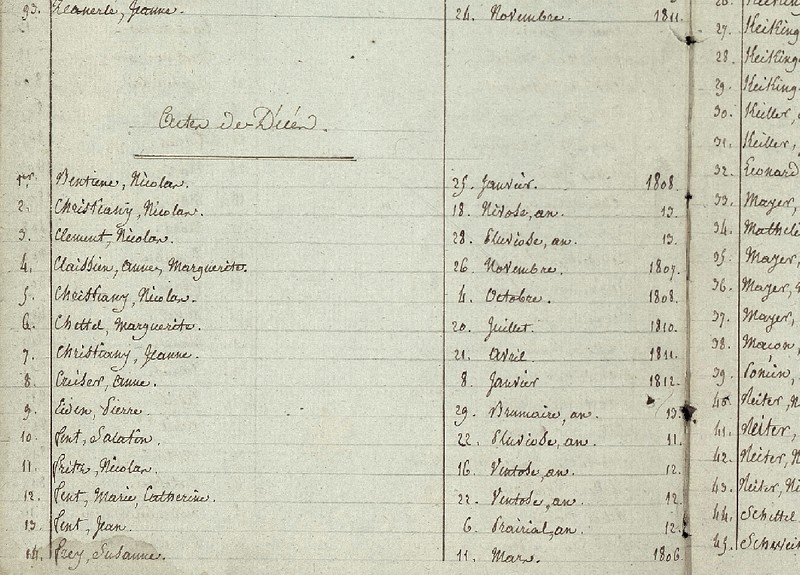 93. Jeanne. 24. Novembre. 1811.
Actes de Décès.
1er. Bentiene, Nicolas. 25. Janvier. 1808.
2. Christiany, Nicolas. 18. Nivose, an. 13.
3. Clement, Nicolas. 28. Pluviose, an. 13.
4. Claissien, Anne, Marguerite. 26. Novembre. 1807.
5. Christiany, Nicolas. 4. Octobre. 1808.
6. Chettel, Marguerite. 20. Juillet. 1810.
7. Christiany, Jeanne. 21. Avril. 1811.
8. Creiser, Anne. 8. Janvier 1812.
9. Eiden, Pierre. 29. Brumaire, an. 13.
10. fent, 22. Pluviose, an. 11.
11. frith, Nicolas. 16. Ventose, an. 12.
12. fent, Marie, Catherine. 22. Ventose, an. 12.
13. fent, Jean. 6. Prairial, an. 12.
14. frey, Susanne. 11. Mars. 1806.
27. Heiking
28. Heiking
29. Heiking
30. Keiller,
31. Keiller,
32. Leonard
33. Mayer,
34. Mathele
35. Mayer,
36. Mayer,
37. Mayer,
38.
39.
40. Reiter, N
41. Reiter,
42. Reiter, N
43. Reiter, Ni
44. Schettel
45. Schweit